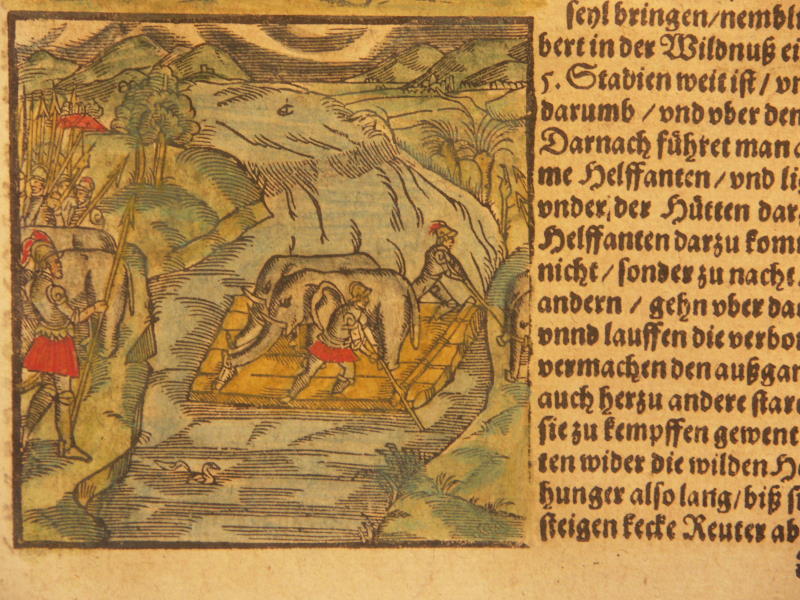 seyl bringen/nembl
bert in der Wildnuß ei
5. Stadien weit ist / vn
darumb / vnd vber den
Darnach führet man a
me Helffanten / vnd li
vnder der Hütten dar
Helffanten darzu kom
nicht / sonder zu nacht
andern / gehn vber da
vnnd lauffen die verbo
vermachen den außgan
auch herzu andere star
sie zu kempffen gewent
ten wider die wilden He
hunger also lang/biß s
steigen kecke Reuter ab